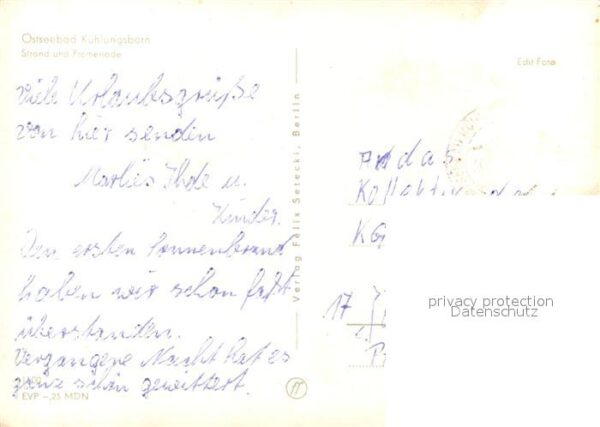 Ostseebad Kühlungsborn
Strand und Promenade
Viele Urlaubsgrüße
von hier senden
Marlies Ihde u.
Kinder.
Den ersten Sonnenbrand
haben wir schon fast
überstanden.
Vergangene Nacht hat es
ganz schön gewittert.
EVP –,25 MDN
Verlag Felix Setecki, Berlin
Echt Foto
An das
KG
17
privacy protection
Datenschutz